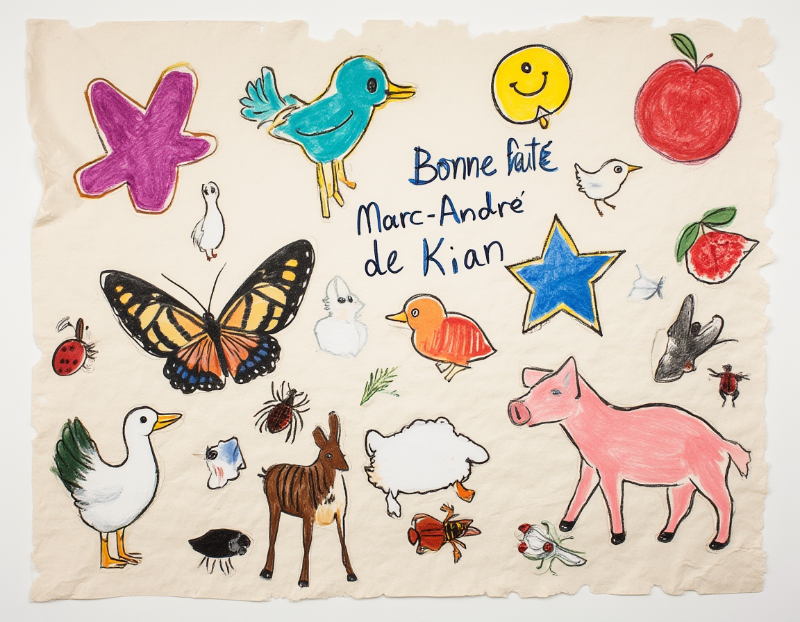 Bonne faitE
Marc-André
de Kian